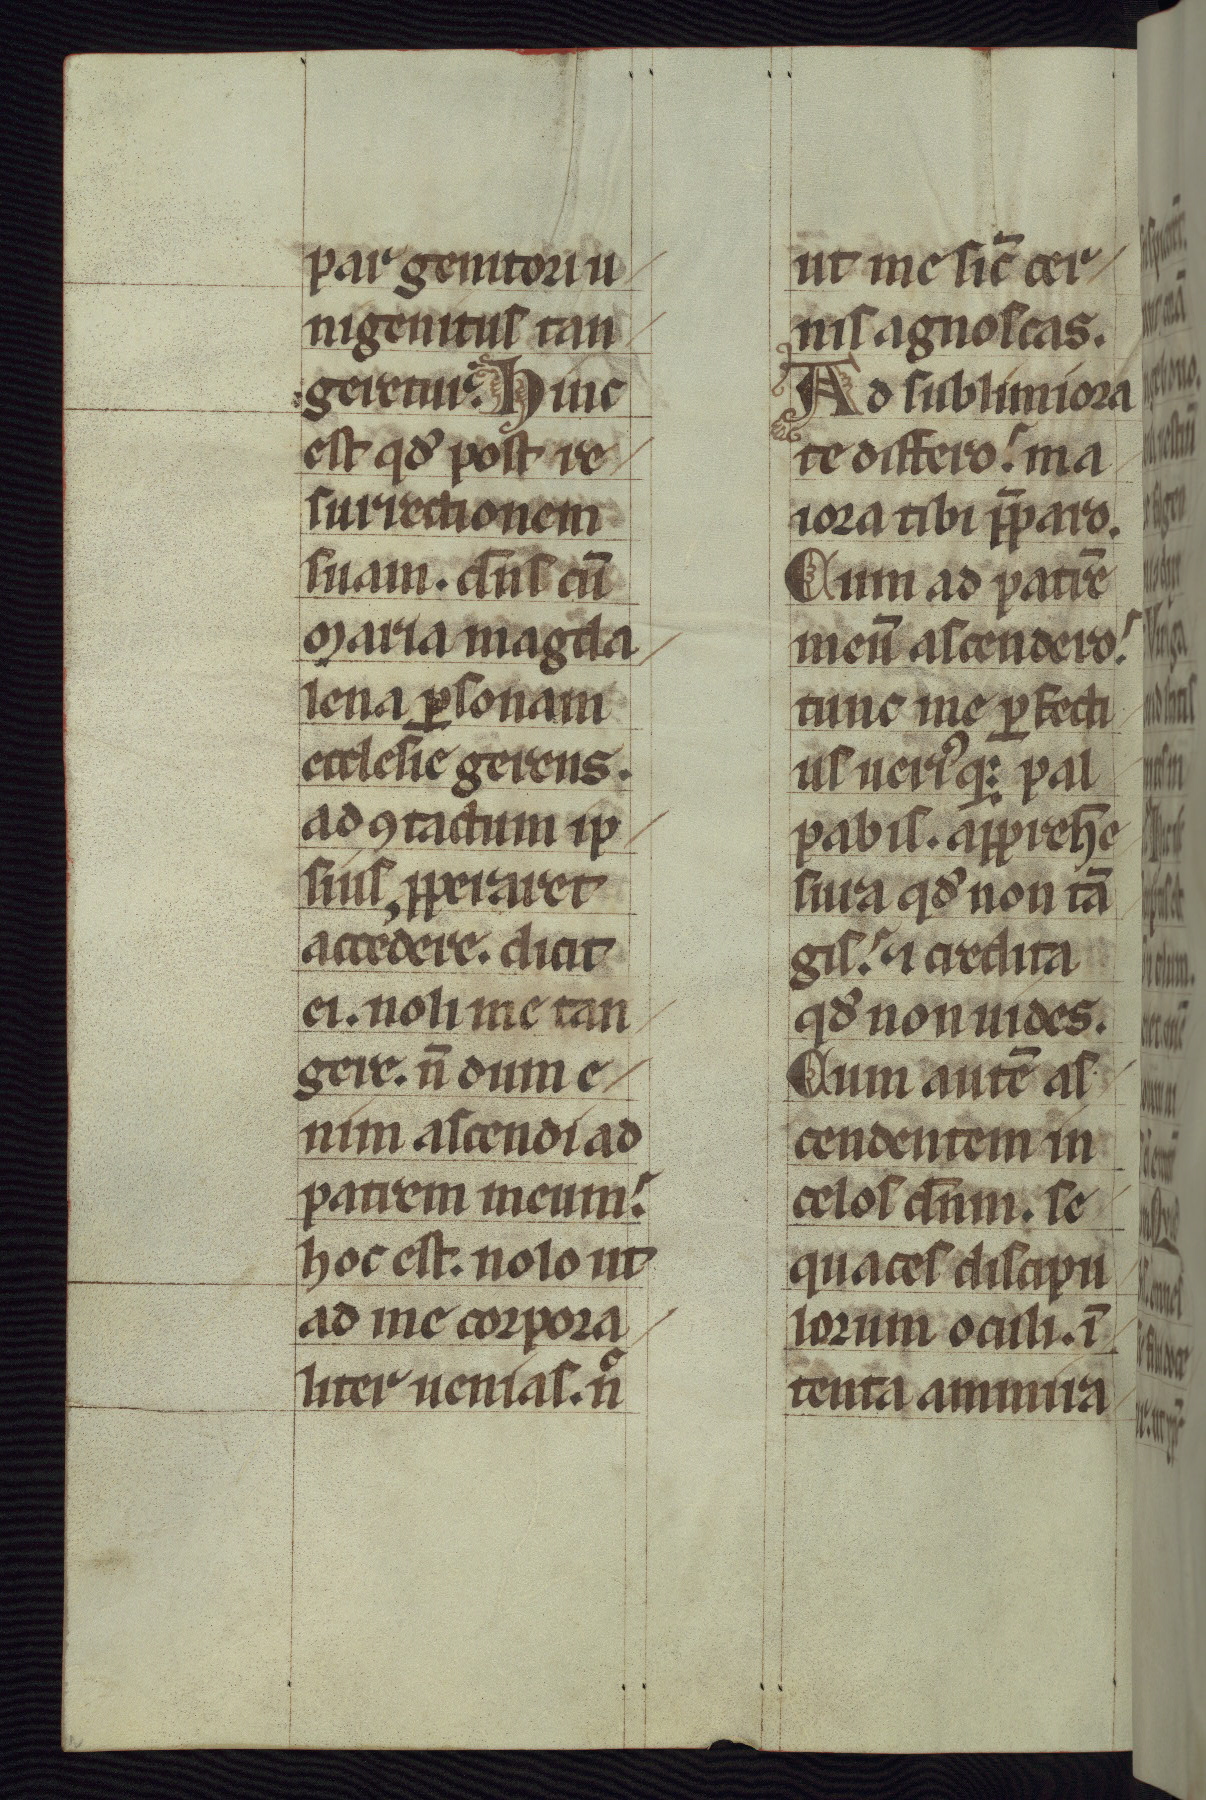 par genitori u
nigenitus tan
geretur. Hinc
est qđ post re
surrectionem
suam. dn̄s cū
Maria magda
lena ꝑsonam
ecclesie gerens.
ad ꝯtactum ip
sius, ꝓperaret
accedere. dicit
ei. noli me tan
gere. n̄dum e
nim ascendi ad
patrem meum.
hoc est. nolo ut
ad me corpora
liter uenias. nͨ
ut me sic̄ cer
nis agnoscas.
Ad sublimiora
te differo. ma
iora tibi p̄paro.
Cum ad patrē
meū ascendero.
tunc me ꝑfecti
us ueriꝰq; pal
pabis. appreh̄e
sura qđ non tā
gis. ⁊ credita
qđ non uides.
Cum autē as
cendentem in
celos dn̄m. se
quaces discipu
lorum oculi. ī
tenta ammira